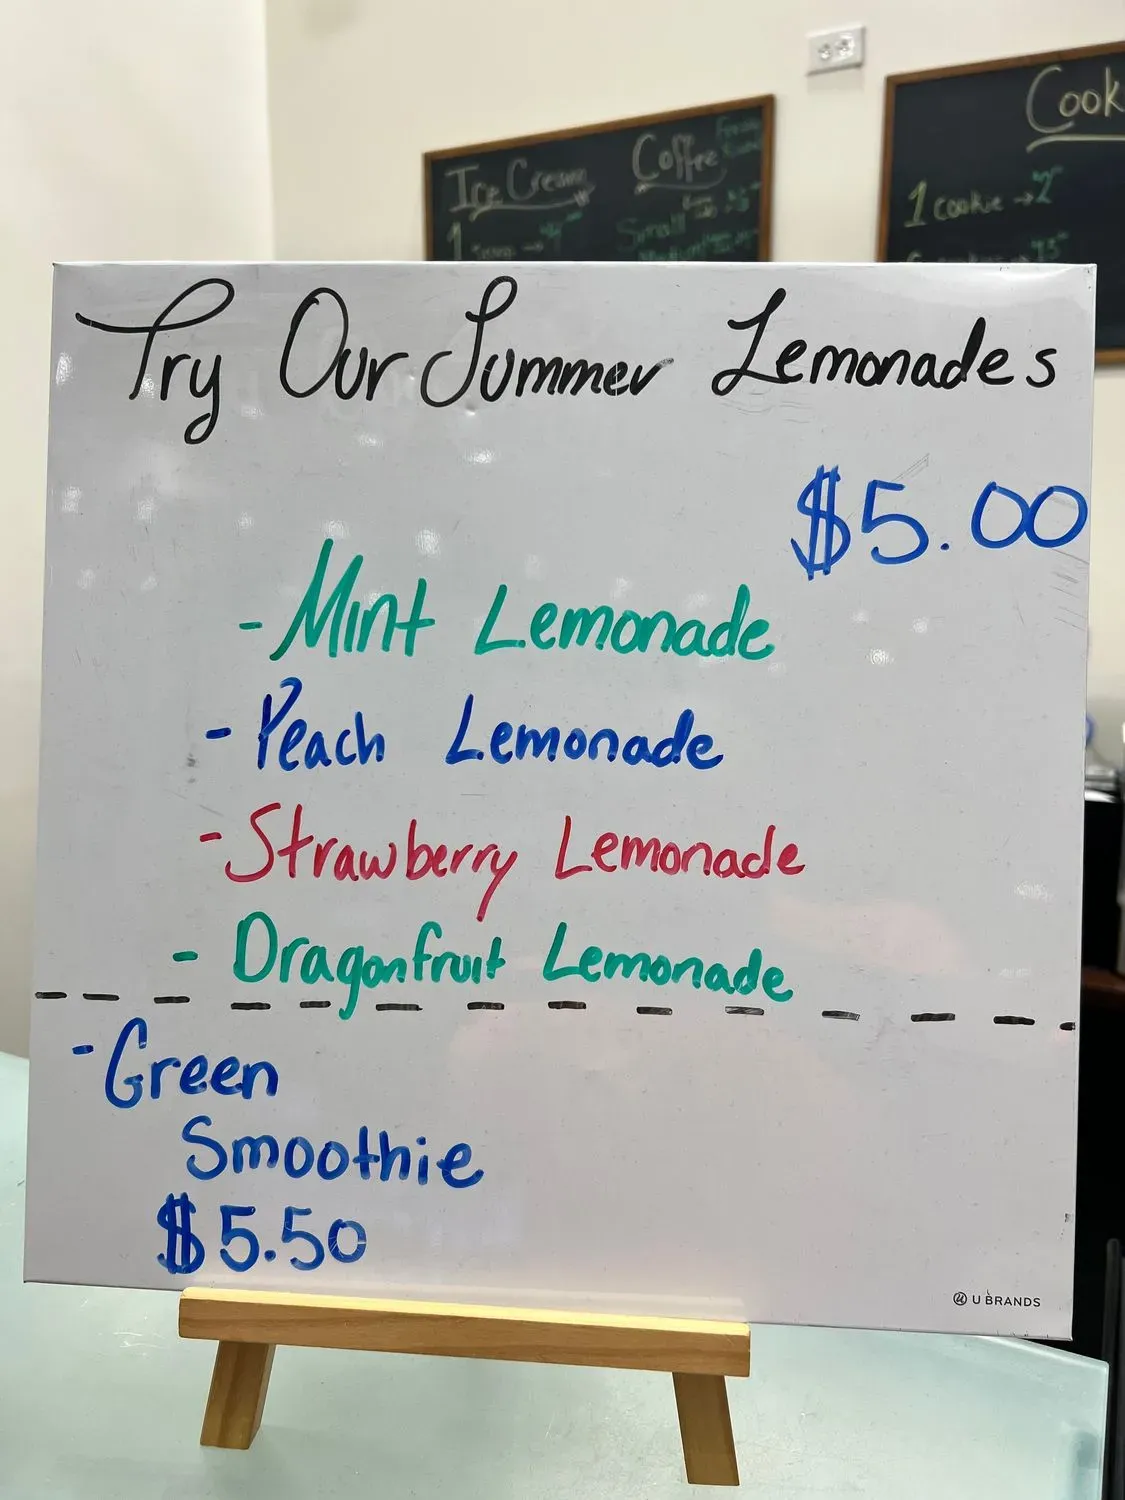 Ice Cream
Coffee
Small
Cook
1 cookie → 2
Try Our Summer Lemonades
$5.00
- Mint Lemonade
- Peach Lemonade
- Strawberry Lemonade
- Dragonfruit Lemonade
- Green
Smoothie
$5.50
U BRANDS